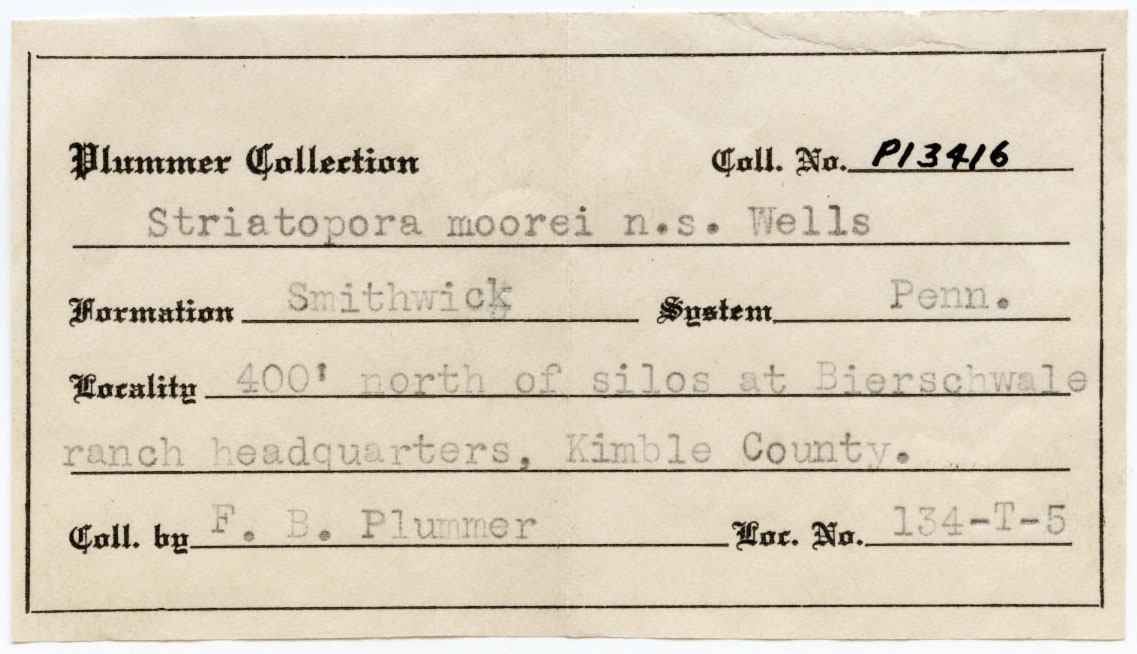 Plummer Collection Coll. No. P13416
Striatopora moorei n.s. Wells
Formation Smithwick System Penn.
Locality 400' north of silos at Bierschwale
ranch headquarters, Kimble County.
Coll. by F. B. Plummer Loc. No. 134-T-5